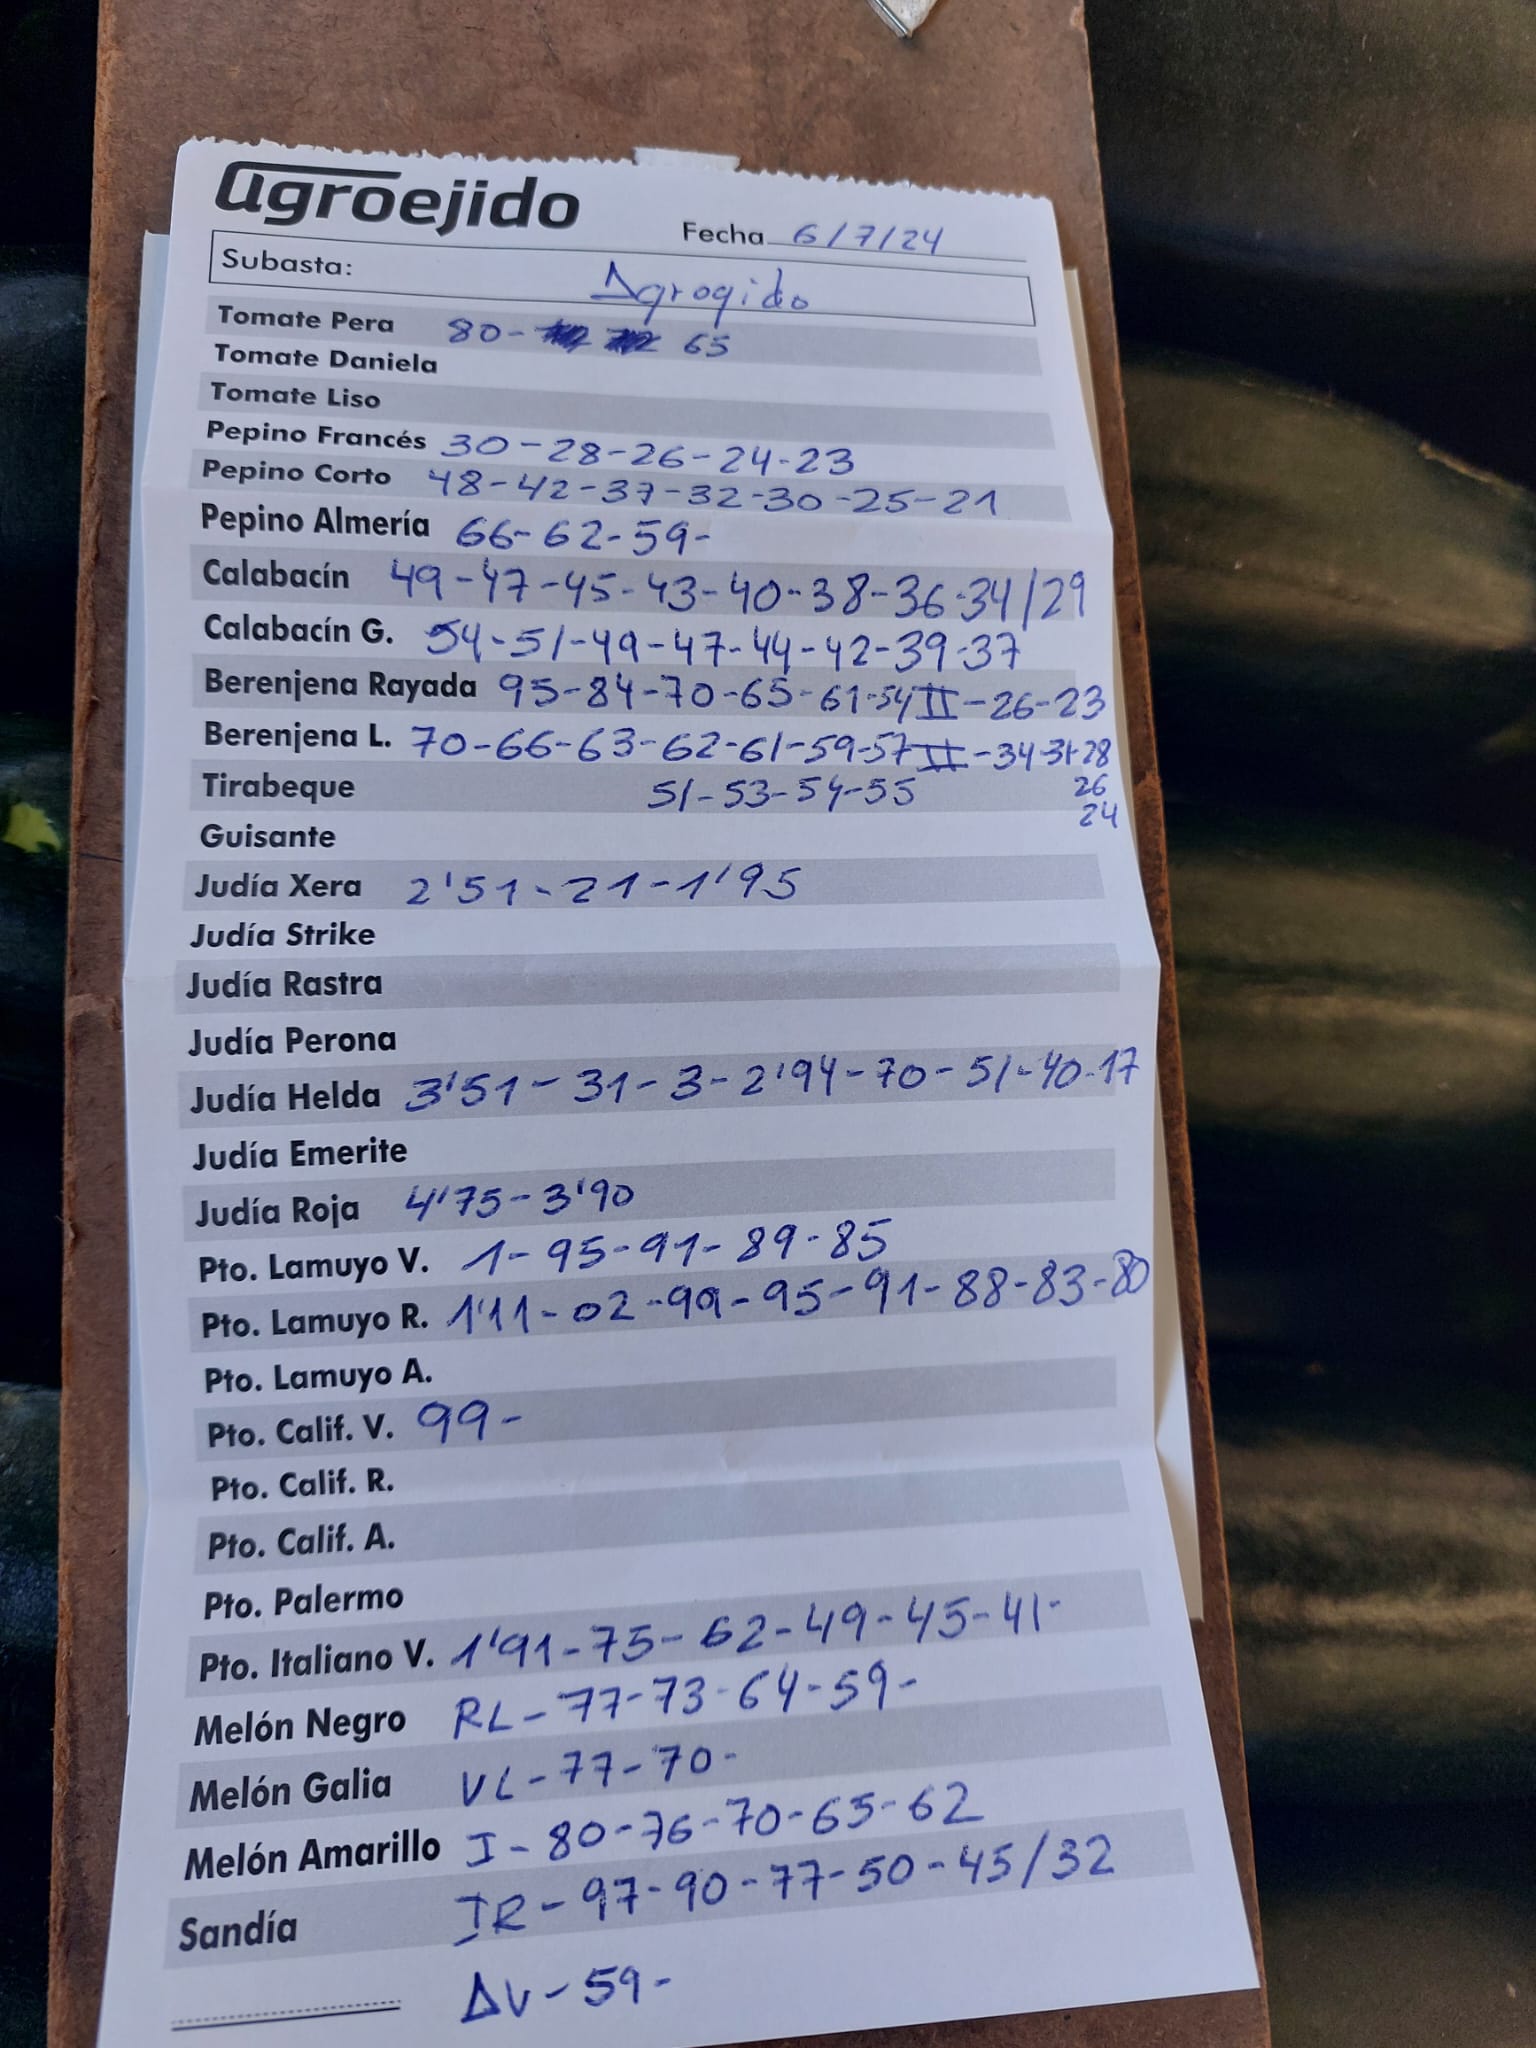 agroejido
Fecha 6/7/24
Subasta: Agrogido
Tomate Pera 80- 65
Tomate Daniela
Tomate Liso
Pepino Francés 30-28-26-24-23
Pepino Corto 48-42-37-32-30-25-21
Pepino Almería 66-62-59-
Calabacín 49-47-45-43-40-38-36-34/29
Calabacín G. 54-51-49-47-44-42-39-37
Berenjena Rayada 95-84-70-65-61-54 II-26-23
Berenjena L. 70-66-63-62-61-59-57 II-34-31-28
Tirabeque 51-53-54-55 26
24
Guisante
Judía Xera 2'51-21-1'95
Judía Strike
Judía Rastra
Judía Perona
Judía Helda 3'51-31-3-2'94-70-51-40-17
Judía Emerite
Judía Roja 4'75-3'90
Pto. Lamuyo V. 1-95-91-89-85
Pto. Lamuyo R. 1'11-02-99-95-91-88-83-80
Pto. Lamuyo A.
Pto. Calif. V. 99-
Pto. Calif. R.
Pto. Calif. A.
Pto. Palermo
Pto. Italiano V. 1'91-75-62-49-45-41-
Melón Negro RL-77-73-64-59-
Melón Galia VL-77-70-
Melón Amarillo I-80-76-70-65-62
Sandía IR-97-90-77-50-45/32
ΔV-59-